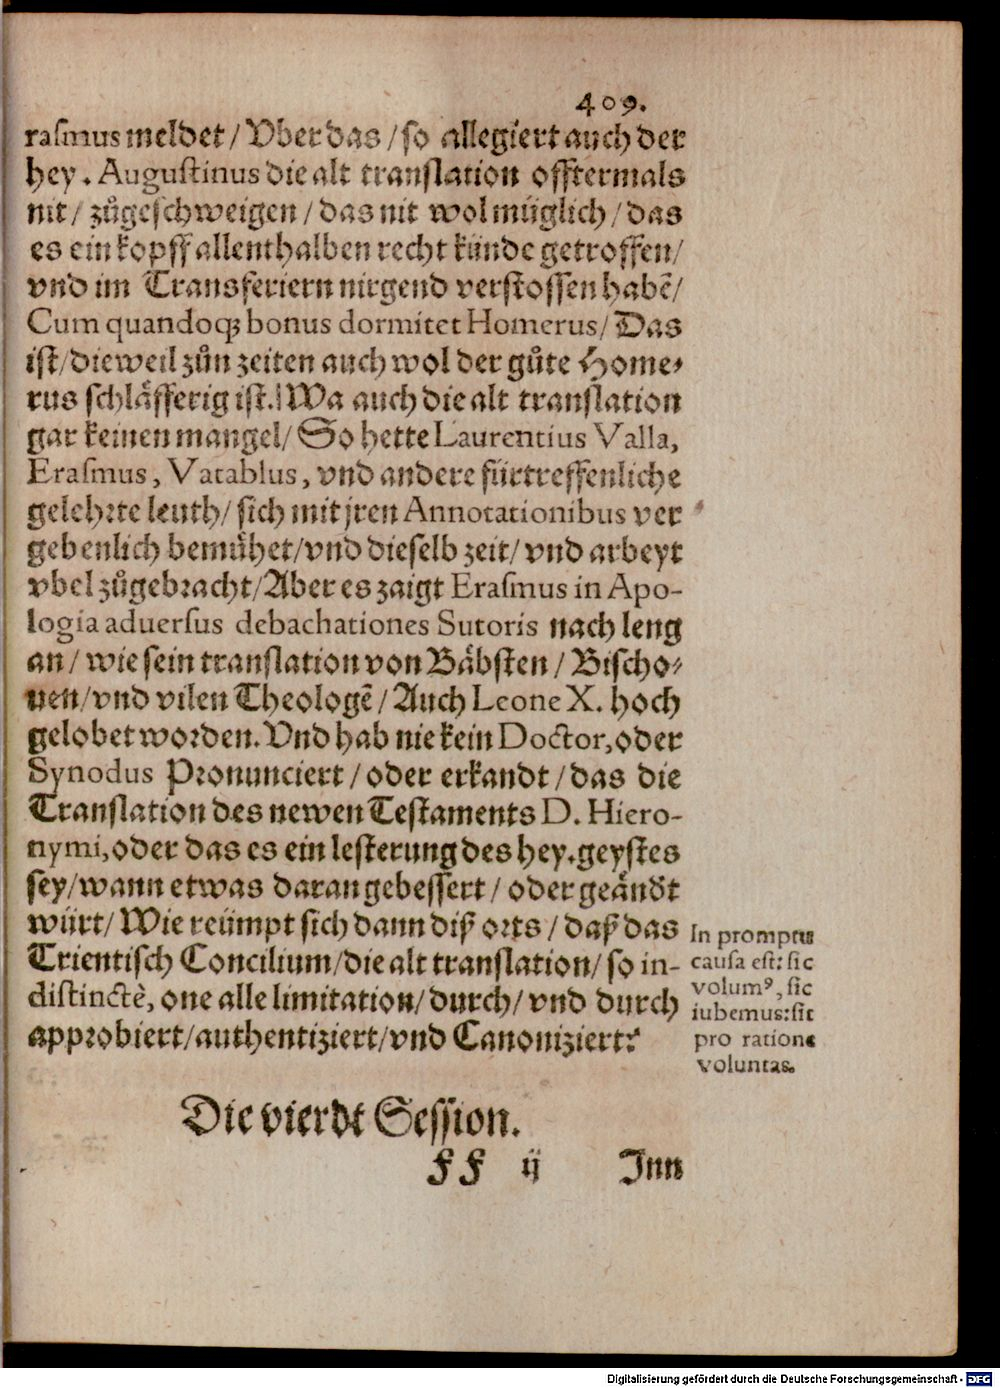 409.
raſmus meldet / Vber das / ſo allegiert auch der
hey. Auguſtinus die alt tranſlation offtermals
nit / zůgeſchweigen / das nit wol müglich / das
es ein kopff allenthalben recht künde getroffen /
vnd im Transferiern nirgend verſtoſſen habẽ /
Cum quandoqꝫ bonus dormitet Homerus / Das
iſt / dieweil zůn zeiten auch wol der gůte Home-
rus ſchläfferig iſt. Wa auch die alt tranſlation
gar keinen mangel / So hette Laurentius Valla,
Eraſmus, Vatablus, vnd andere fürtreffenliche
gelehrte leuth / ſich mit jren Annotationibus ver
gebenlich bemühet / vnd dieſelb zeit / vnd arbeyt
vbel zůgebracht / Aber es zaigt Eraſmus in Apo-
logia aduerſus debachationes Sutoris nach leng
an / wie ſein tranſlation von Bäbſten / Biſcho-
uen / vnd vilen Theologẽ / Auch Leone X. hoch
gelobet worden. Vnd hab nie kein Doctor, oder
Synodus Pronunciert / oder erkandt / das die
Tranſlation des newen Teſtaments D. Hiero-
nymi, oder das es ein leſterung des hey. geyſtes
ſey / wann etwas daran gebeſſert / oder geändt
würt / Wie reümpt ſich dann diß orts / daß das
Trientiſch Concilium / die alt tranſlation / ſo in-
diſtinctè, one alle limitation / durch / vnd durch
approbiert / authentiziert / vnd Canoniziert?
In promptu
cauſa eſt: ſic
volumꝰ, ſic
iubemus: ſit
pro ratione
voluntas.
Die vierdt Seſſion.
Ff ij Inn
Digitalisierung gefördert durch die Deutsche Forschungsgemeinschaft - DFG